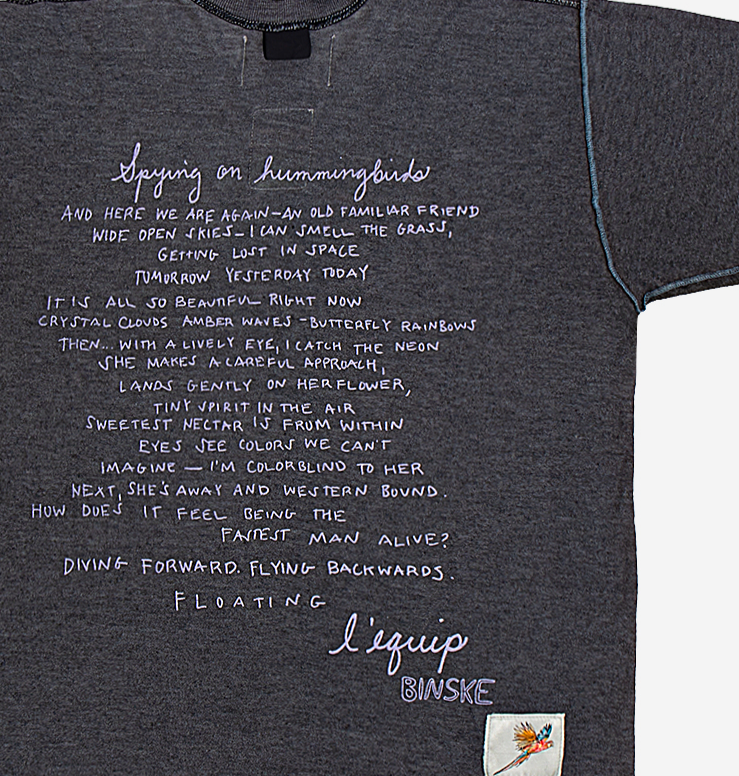 Spying on hummingbirds
AND HERE WE ARE AGAIN—AN OLD FAMILIAR FRIEND
WIDE OPEN SKIES—I CAN SMELL THE GRASS,
GETTING LOST IN SPACE
TOMORROW YESTERDAY TODAY
IT IS ALL SO BEAUTIFUL RIGHT NOW
CRYSTAL CLOUDS AMBER WAVES-BUTTERFLY RAINBOWS
THEN... WITH A LIVELY EYE, I CATCH THE NEON
SHE MAKES A CAREFUL APPROACH,
LANDS GENTLY ON HER FLOWER,
TINY SPIRIT IN THE AIR
SWEETEST NECTAR IS FROM WITHIN
EYES SEE COLORS WE CAN'T
IMAGINE — I'M COLORBLIND TO HER
NEXT, SHE'S AWAY AND WESTERN BOUND.
HOW DOES IT FEEL BEING THE
FASTEST MAN ALIVE?
DIVING FORWARD. FLYING BACKWARDS.
FLOATING
l'équip
BINSKE